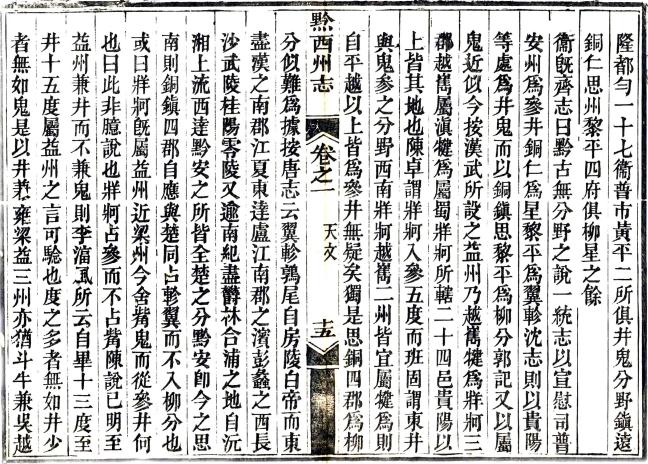 隆都勻一十七衛普市黃平二所俱井鬼分野鎮遠
銅仁思州黎平四府俱柳星之餘
衛旣齊志曰黔古無分野之說一統志以宣慰司普
安州為參井銅仁為星黎平為翼軫沈志則以貴陽
等處為井鬼而以銅鎮思黎平為柳分郭記又以屬
鬼近似今按漢武所設之益州乃越巂犍為牂牁三
郡越巂屬滇犍為屬蜀牂牁所轄二十四邑貴陽以
上皆其地也陳卓謂牂牁入參五度而班固謂東井
與鬼參之分野西南牂牁越巂二州皆宜屬犍為則
自平越以上皆為參井無疑矣獨是思銅四郡為柳
黔西州志
卷之一
天文
十五
分似難為據按唐志云翼軫鶉尾自房陵白帝而東
盡漢之南郡江夏東達盧江南郡之濱彭蠡之西長
沙武陵桂陽零陵又逾南紀盡鬱林合浦之地自沅
湘上流西達黔安之所皆全楚之分黔安卽今之思
南則銅鎮四郡自應與楚同占軫翼而不入柳分也
或曰牂牁旣屬益州近梁州今舍觜鬼而從參井何
也曰此非臆說也牂牁占參而不占觜陳說已明至
益州兼井而不兼鬼則李淄風所云自畢十三度至
井十五度屬益州之言可騐也度之多者無如井少
者無如鬼是以井兼雍梁益三州亦猶斗牛兼吳越